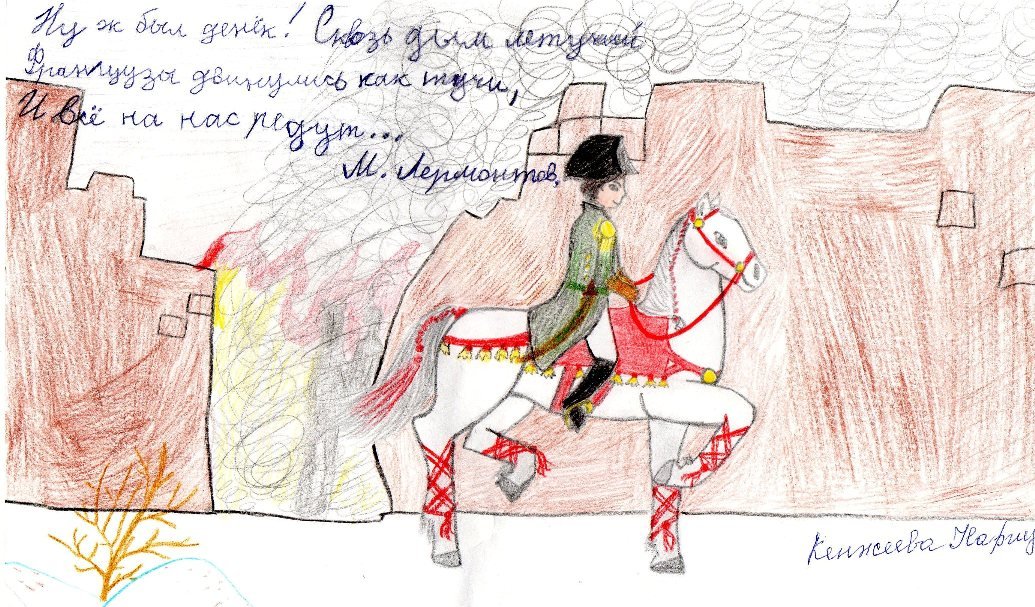 Ну ж был денёк! Сквозь дым летучий
Французы двинулись как тучи,
И всё на нас редут...
М. Лермонтов.
Кенжеева Наргиз